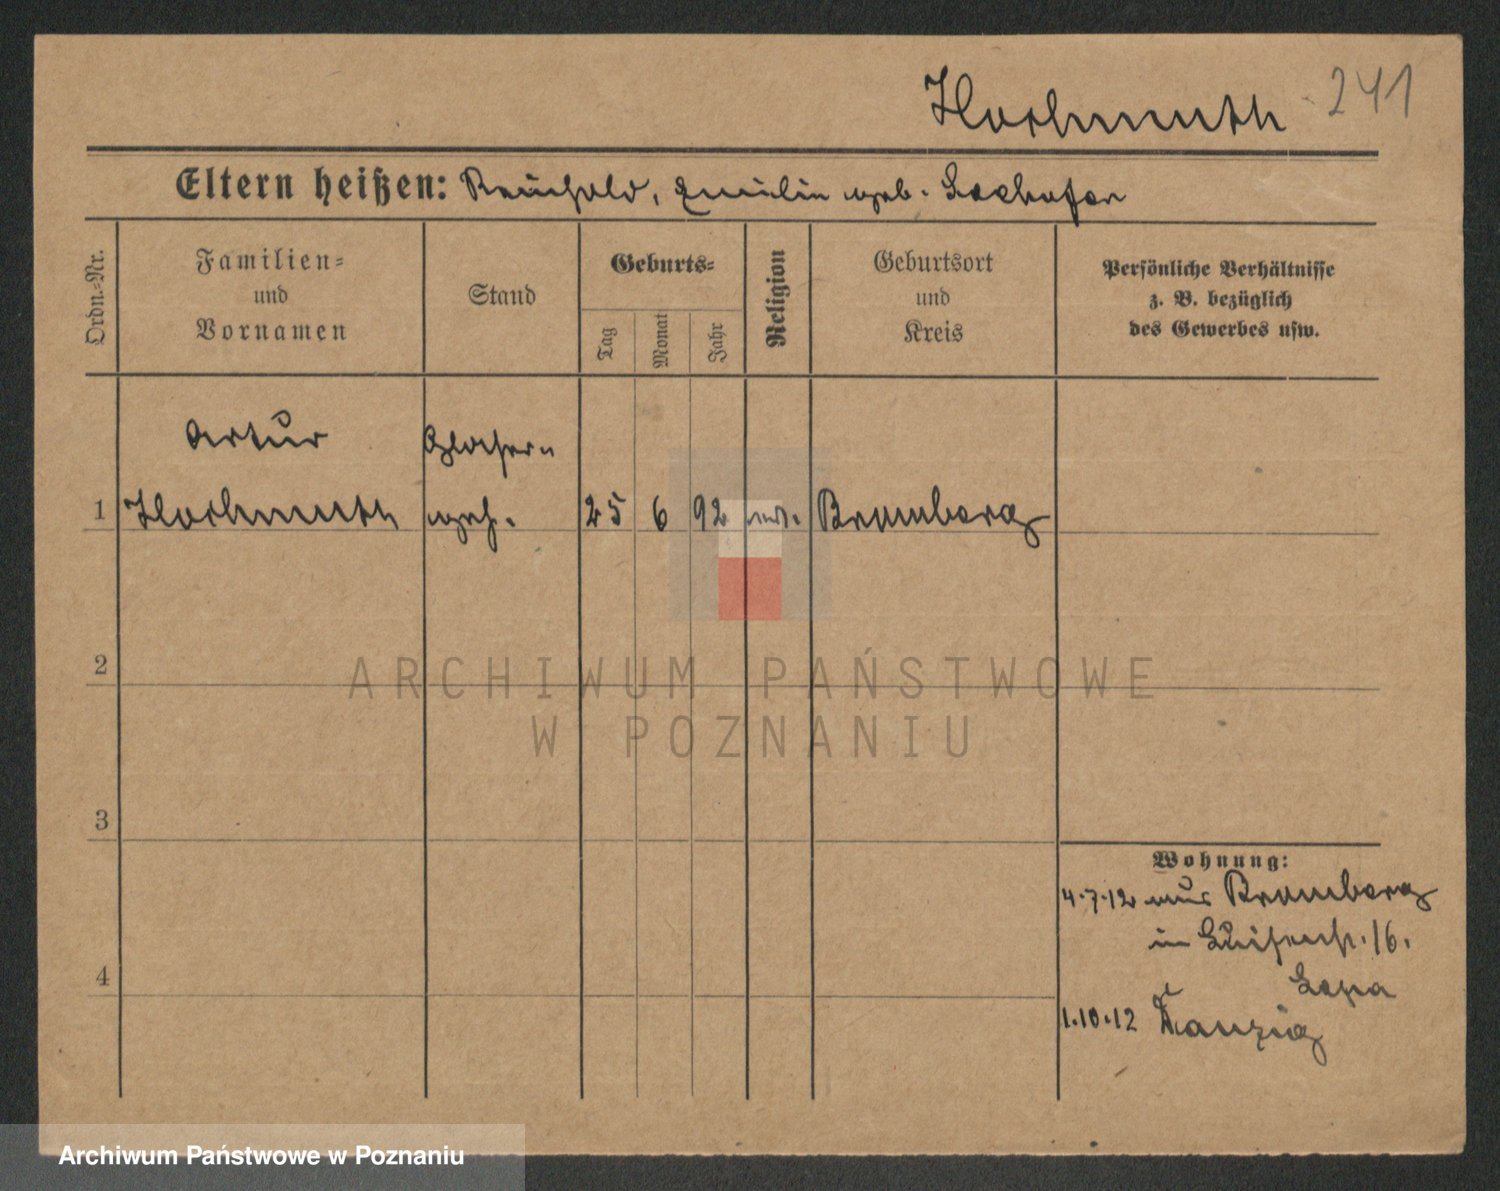 Hochmuth 241
Eltern heißen: Reinhold, Emilie geb.
Ordn.-Nr.
Familien-
und
Vornamen
Stand
Geburts-
Tag
Monat
Jahr
Religion
Geburtsort
und
Kreis
Persönliche Verhältnisse
z. B. bezüglich
des Gewerbes usw.
Artur Glaser-
1 Hochmuth geh. 25 6 92 ev. Bromberg
2
ARCHIWUM PAŃSTWOWE
W POZNANIU
3
Wohnung:
4.7.12 aus Bromberg
in Luisenstr. 16.
4
1.10.12 Danzig
Archiwum Państwowe w Poznaniu